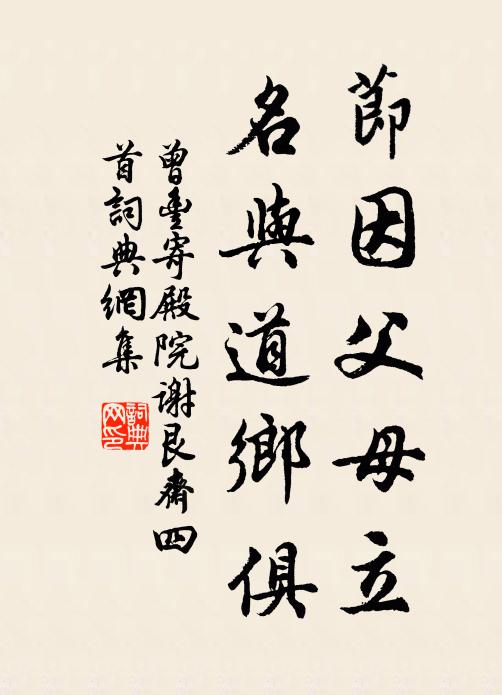 節因父母立
名與道鄉俱
曾豐寄殿院謝艮齋四
首詞典網集
詞典
网印